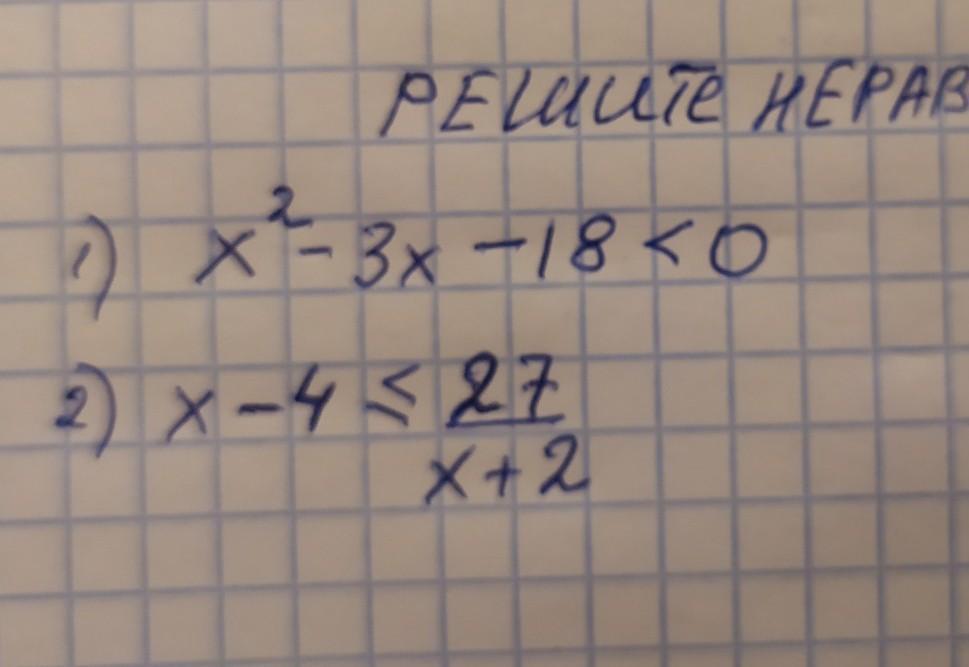 РЕШИТЕ НЕРАВ
1) x² - 3x - 18 < 0
2) x - 4 ≤ 27/(x + 2)